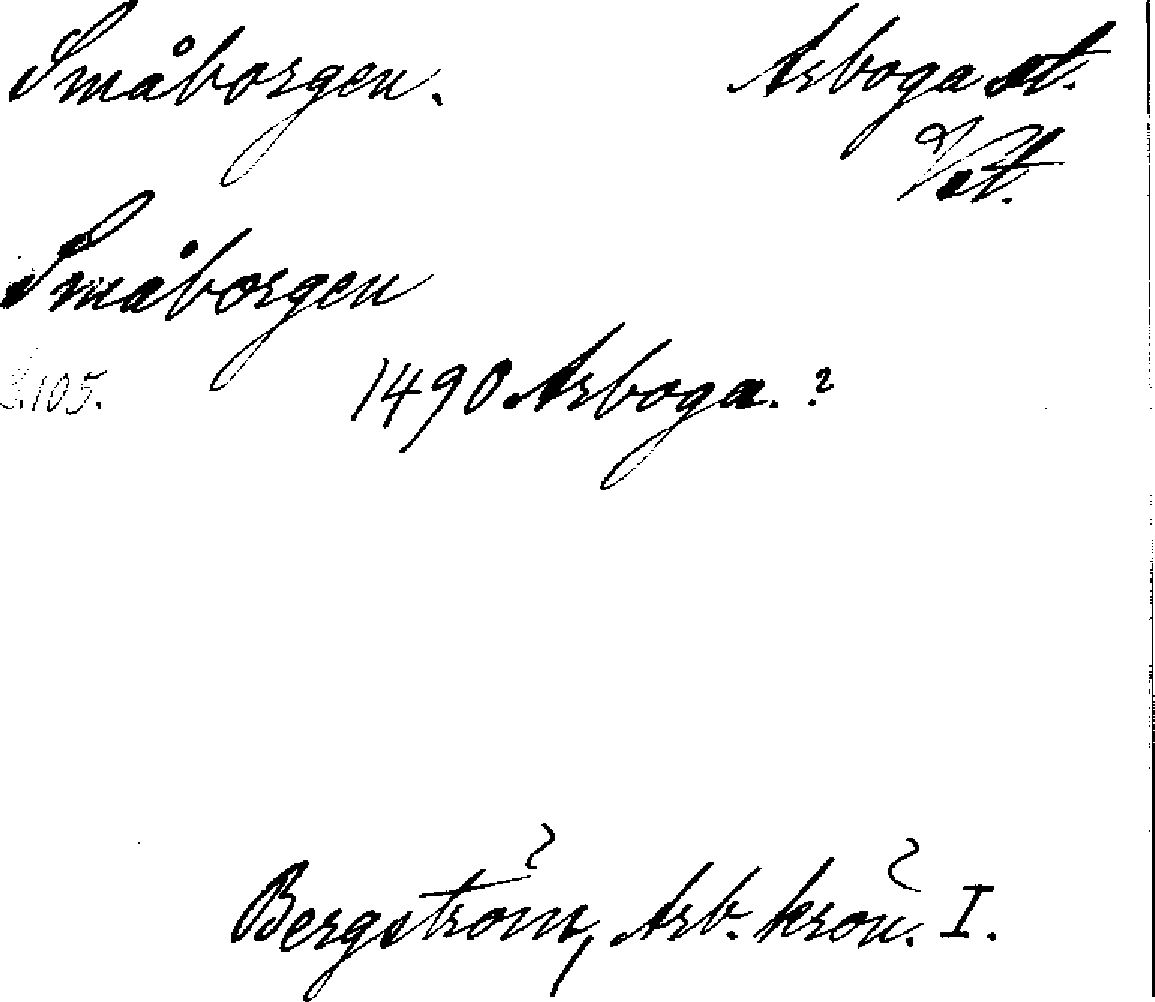 Småborgen. Arboga st.
Vstt.
Småborgen
S. 105. 1490 Arboga. ?
Bergström, Arb. krön. I.